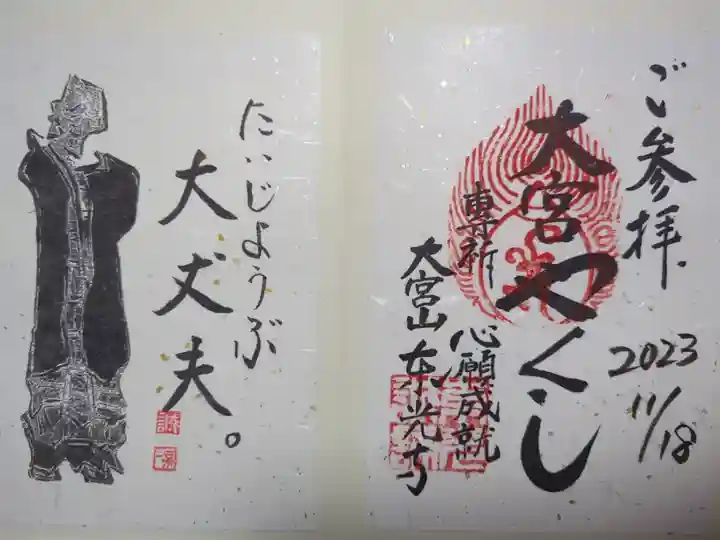 ご参拝.
2023
11/18
大宮やくし
専祈 心願成就
大宮山東光寺
だいじょうぶ
大丈夫。